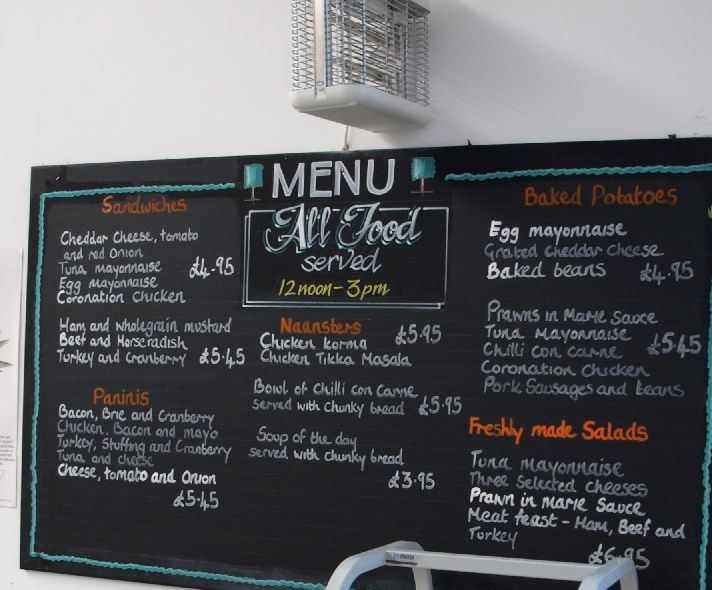 MENU
All Food
served
12noon-3pm
Sandwiches
Cheddar Cheese, tomato
and red Onion
Tuna mayonnaise £4.95
Egg mayonnaise
Coronation Chicken
Ham and wholegrain mustard
Beef and Horseradish
Turkey and Cranberry £5.45
Paninis
Bacon, Brie and Cranberry
Chicken, Bacon and mayo
Turkey, Stuffing and Cranberry
Tuna and cheese
Cheese, tomato and Onion
£5.45
Naansters £5.95
Chicken Korma
Chicken Tikka Masala
Bowl of Chilli con Carne
served with Chunky bread £5.95
Soup of the day
served with chunky bread
£3.95
Baked Potatoes
Egg mayonnaise
Grated Cheddar Cheese
Baked beans £4.95
Prawns in Marie Sauce
Tuna Mayonnaise
Chilli con carne £5.45
Coronation Chicken
Pork Sausages and beans
Freshly made Salads
Tuna mayonnaise
Three Selected cheeses
Prawn in Marie Sauce
Meat feast - Ham, Beef and
Turkey
£6.95